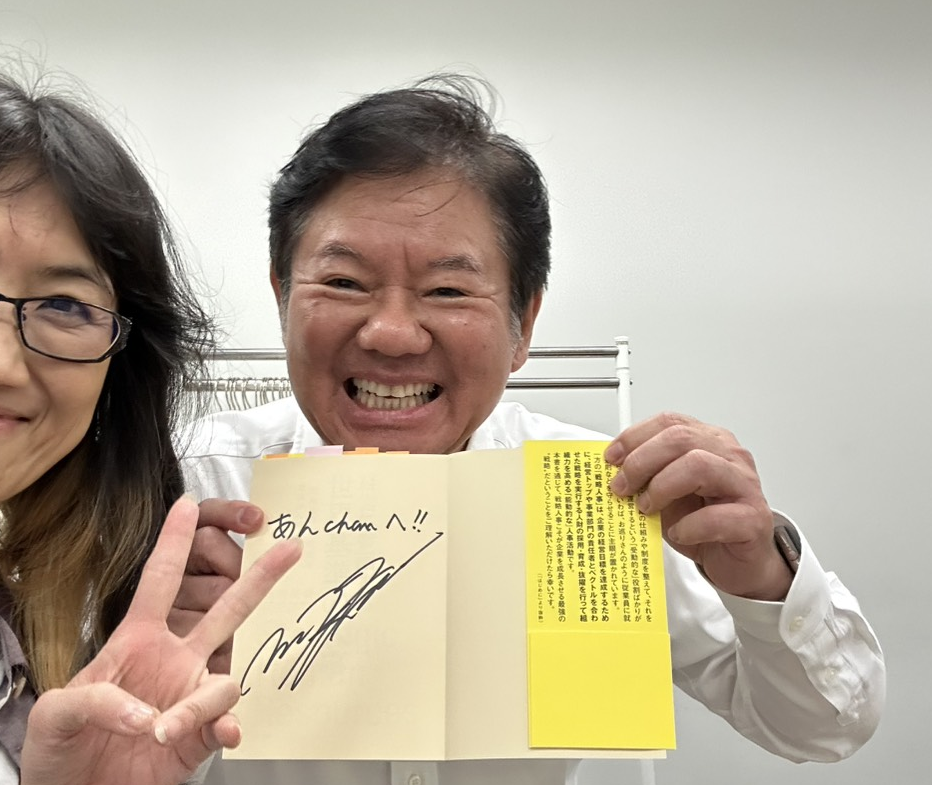 あんchanへ!!
の仕組みや制度を整えて、それを
運営するという「受動的な」役割ばかりが
いわば、お巡りさんのように従業員に就
則などを守らせることに主眼が置かれています。
一方の「戦略人事」は、企業の経営目標を達成するため
に、経営トップや事業部門の責任者とベクトルを合わ
せた戦略を実行する人財の採用・育成・抜擢を行って組
織力を高める「能動的な」人事活動です。
本書を通じて、戦略人事こそが企業を成長させる最強の
“戦略”だということをご理解いただけたら幸いです。
(「はじめに」より抜粋)